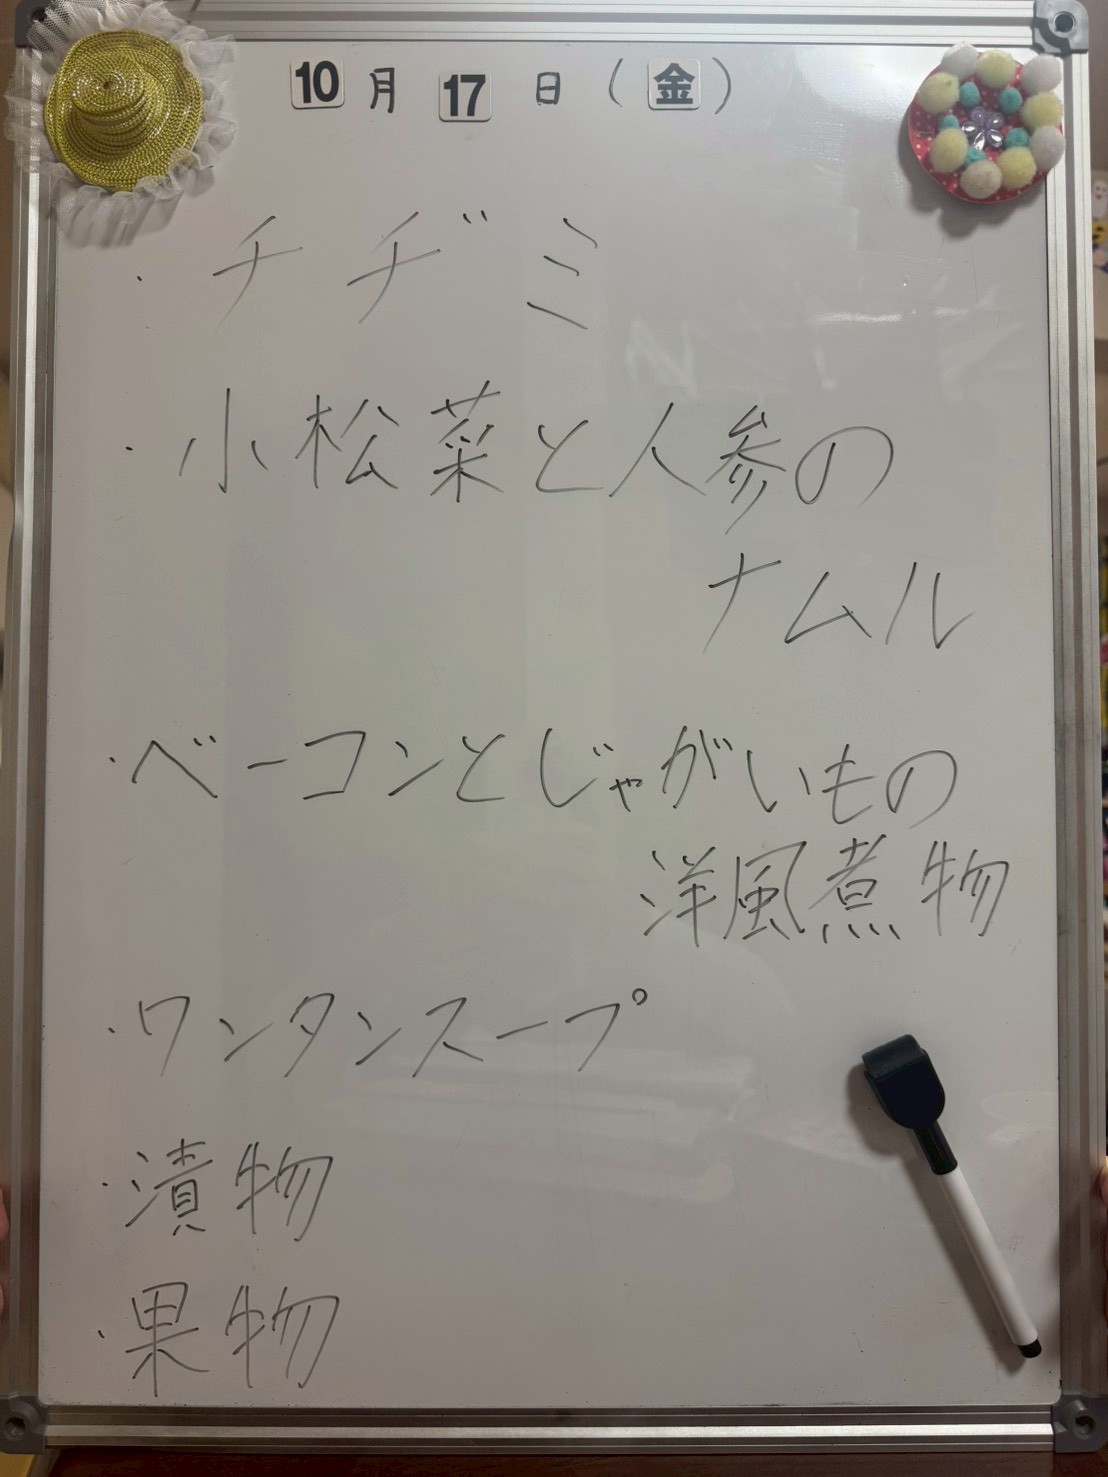 10月17日(金)
・チヂミ
・小松菜と人参の
ナムル
・ベーコンとじゃがいもの
洋風煮物
・ワンタンスープ
・漬物
・果物